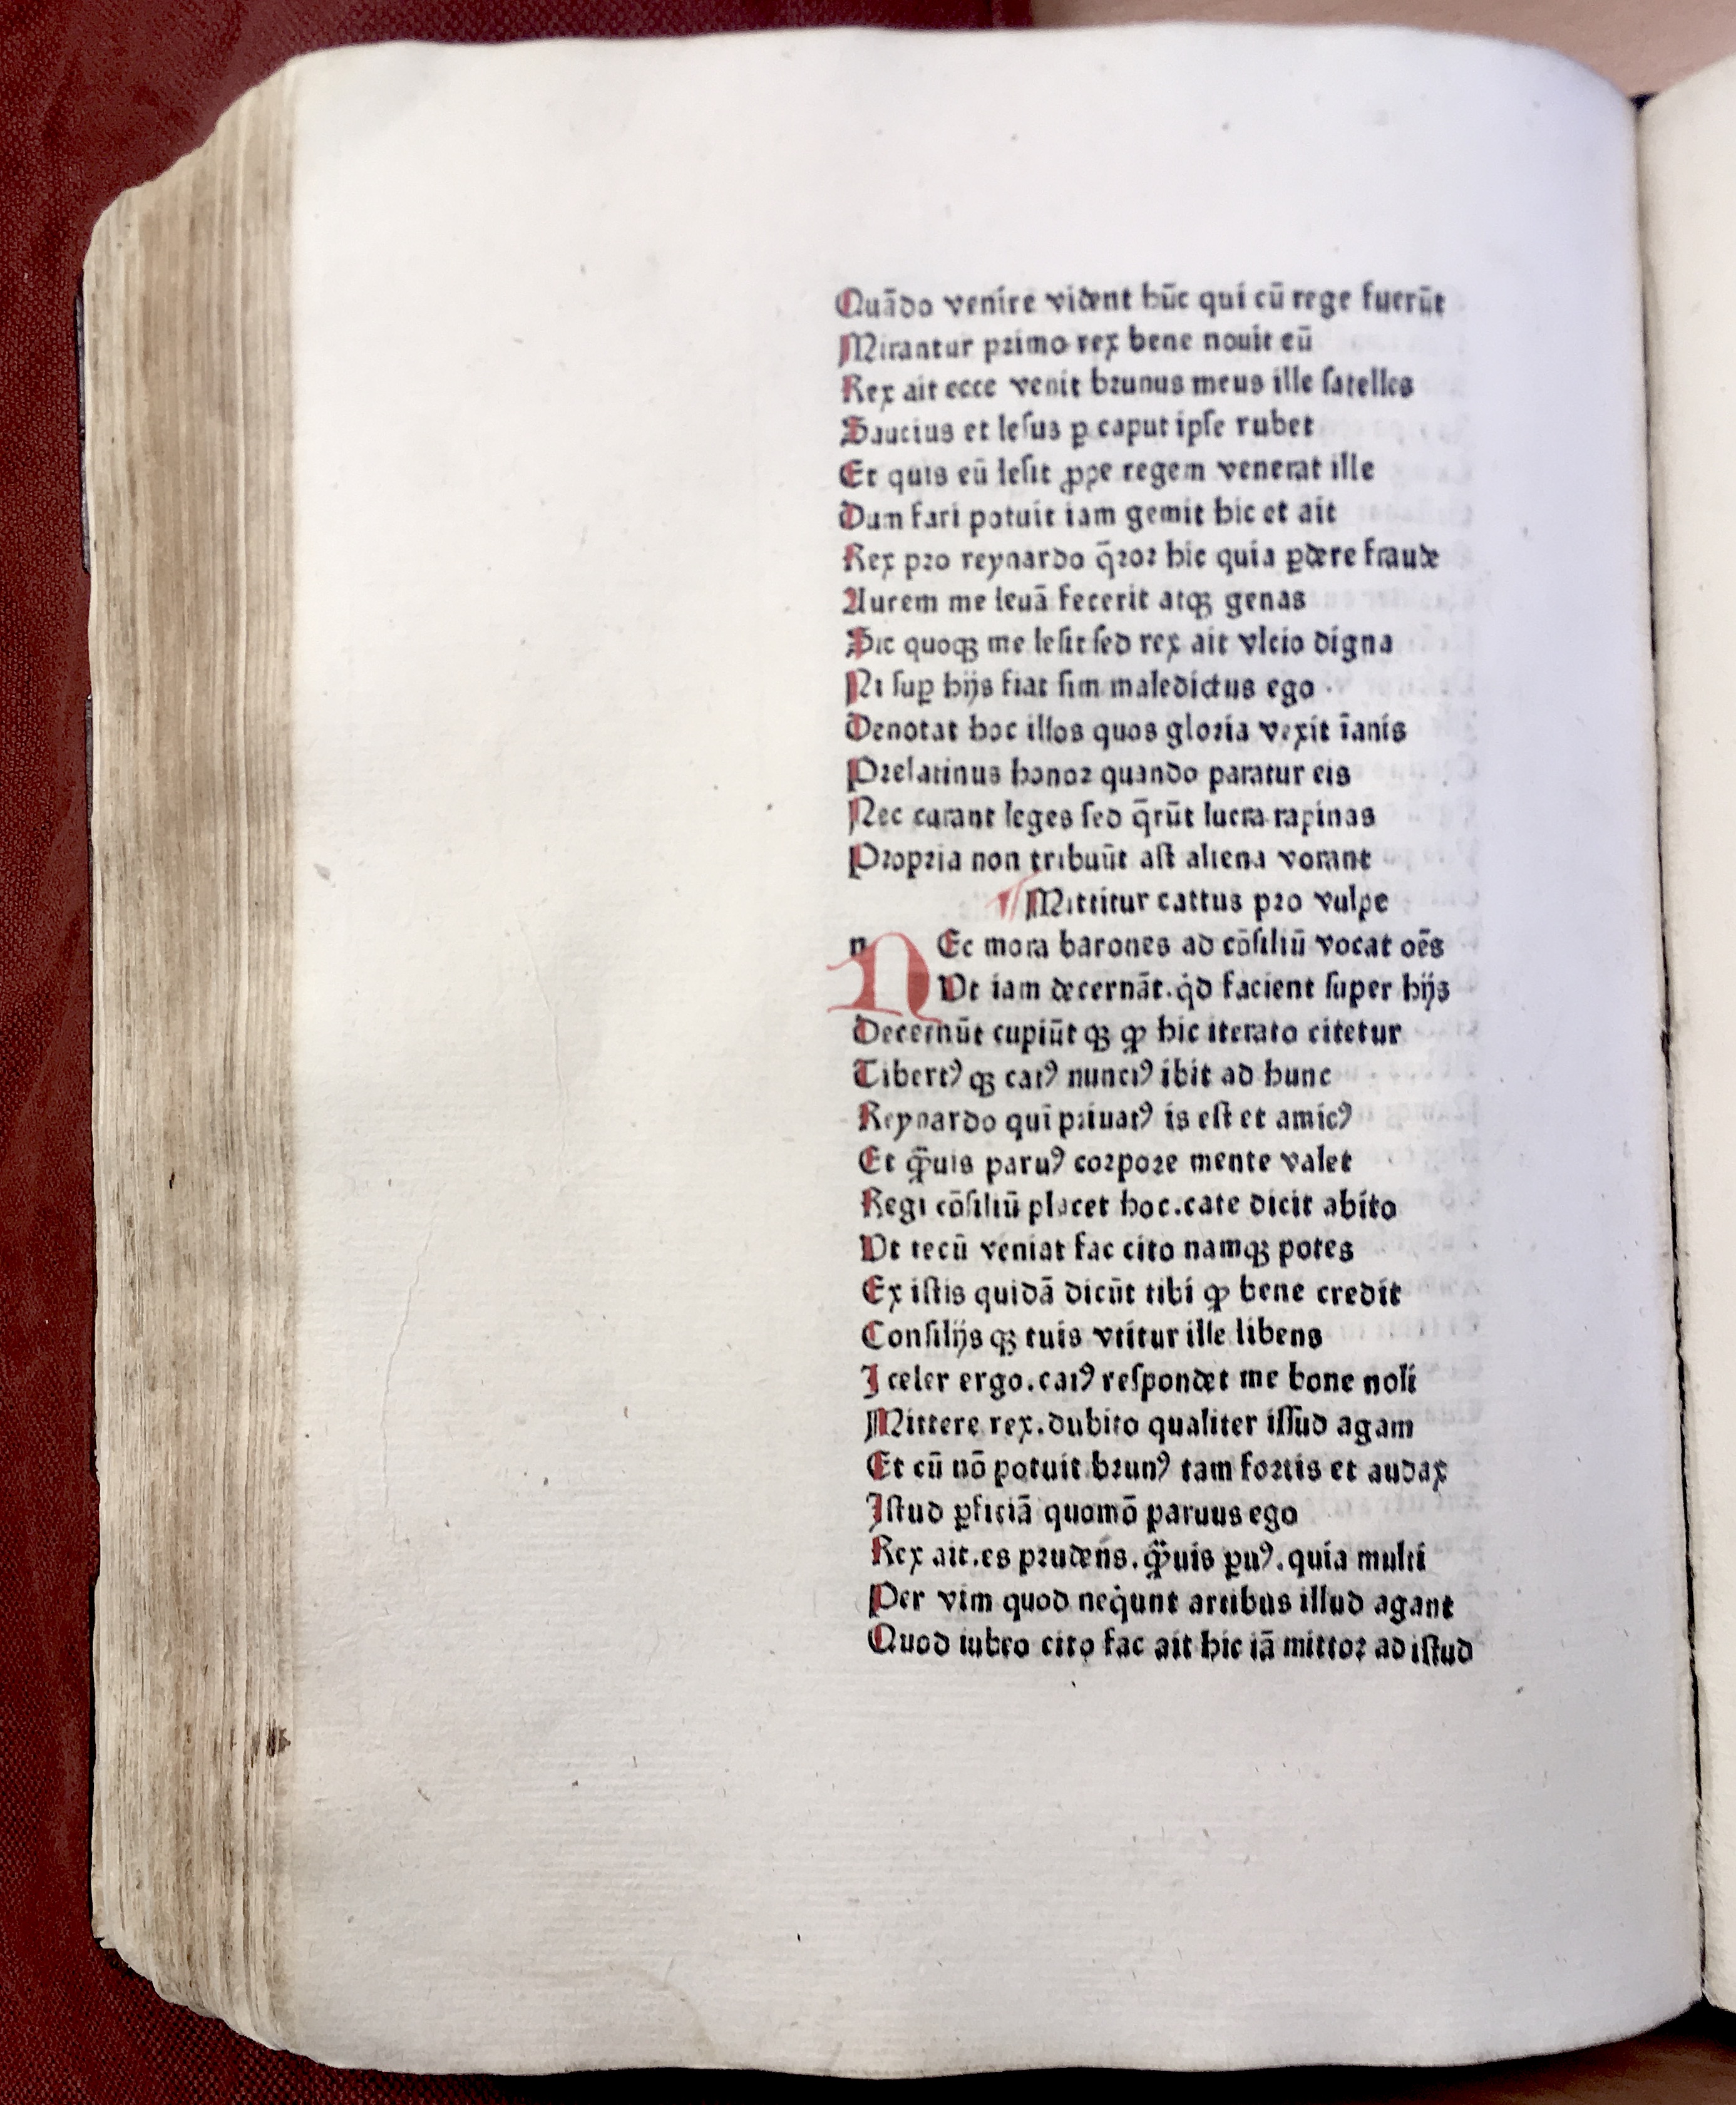 Quādo venire vident hūc qui cū rege fuerūt
Mirantur primo rex bene nouit eū
Rex ait ecce venit brunus meus ille ſatelles
Saucius et leſus ꝑ caput ipſe rubet
Et quis eū leſit ꝓpe regem venerat ille
Dum fari potuit iam gemit hic et ait
Rex pro reynardo q̄ror hic quia ꝑdere fraude
Aurem me leuā fecerit atqꝫ genas
Sic quoqꝫ me leſit ſed rex ait vlcio digna
Ni ſuꝑ hijs fiat ſim maledictus ego
Denotat hoc illos quos gloria vexit īanis
Prelatinus honor quando paratur eis
Nec curant leges ſed q̄rūt lucra rapinas
Propria non tribuūt aſt aliena vorant
¶ Mittitur cattus pro vulpe
n NEc mora barones ad cōſiliū vocat oēs
Vt iam decernāt. qͥd facient ſuper hijs
Decernūt cupiūt qꝫ ꝙ hic iterato citetur
Tibertꝰ qꝫ catꝰ nunciꝰ ibit ad hunc
Reynardo qui priuatꝰ is eſt et amicꝰ
Et q̄̈uis paruꝰ corpore mente valet
Regi cōſiliū placet hoc. cate dicit abito
Vt tecū veniat fac cito namqꝫ potes
Ex iſtis quidā dicūt tibi ꝙ bene credit
Conſilijs qꝫ tuis vtitur ille libens
I celer ergo. catꝰ reſpondet me bone noli
Mittere rex. dubito qualiter iſſud agam
Et cū nō potuit brunꝰ tam fortis et audax
Iſtud ꝑficiā quomō paruus ego
Rex ait. es prudens. q̄̈uis ꝑuꝰ. quia multi
Per vim quod neqͥunt artibus illud agant
Quod iubeo cito fac ait hic iā mittor ad iſtud